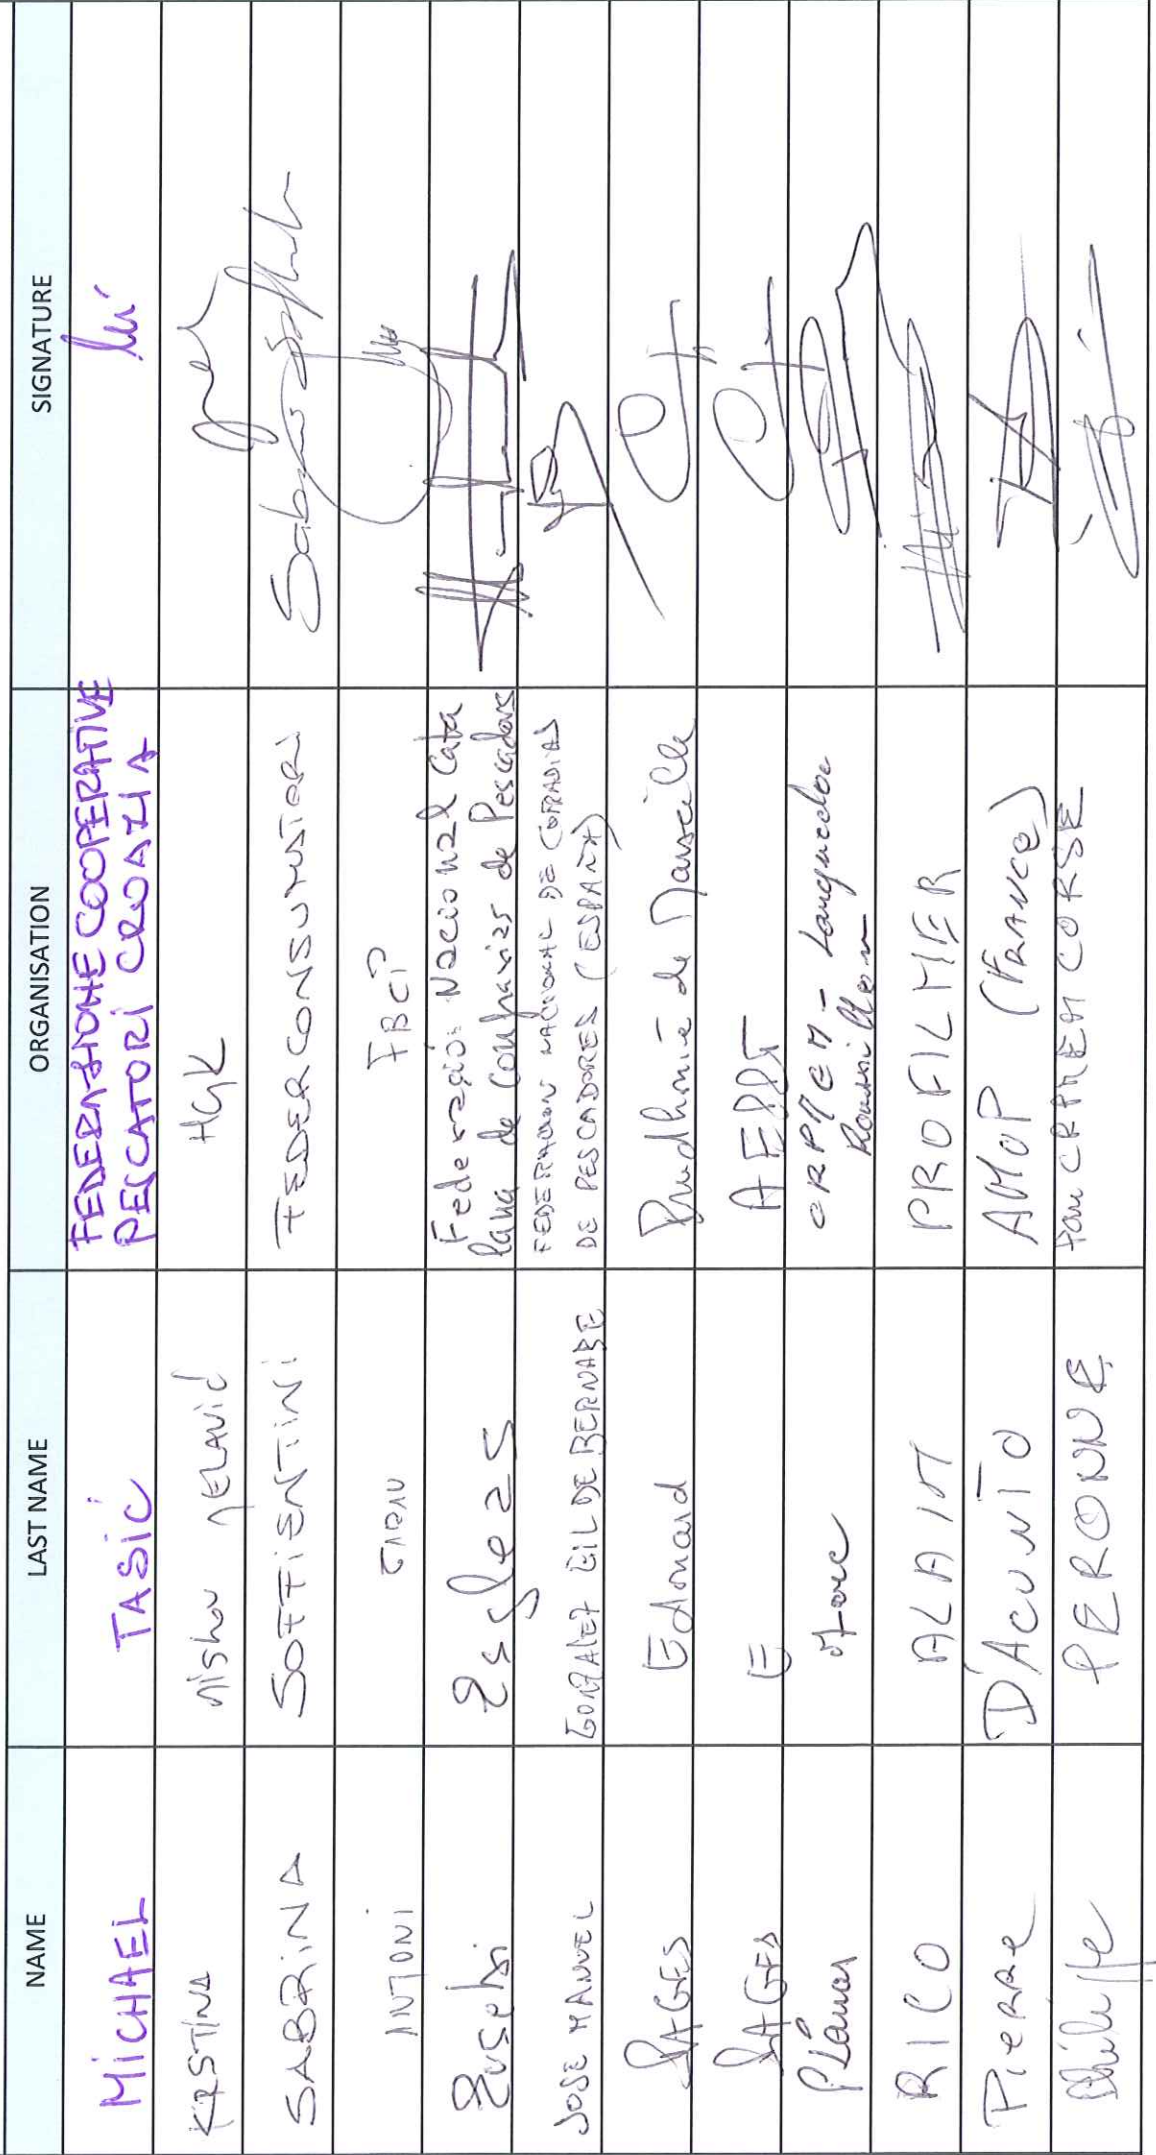 NAME LAST NAME ORGANISATION SIGNATURE
MICHAEL TASIĆ FEDERAZIONE COOPERATIVE
PESCATORI CROAZIA
KRSTINA MIŠLOV JELAVIĆ HGK
SABRINA SOFFIENTINI FEDERCONSUMATORI
ANTONI GARAU FBCP
Eusebi Esgleas Federació Nacional Cata
lana de Confraries de Pescadors
JOSE MANUEL GONZALEZ GIL DE BERNABE FEDERACION NACIONAL DE COFRADIAS
DE PESCADORES (ESPAÑA)
PAGES Edouard Prudhomie de Marseille
PAGES E
Planas Marc CRPMEM - Languedoc
Roussillon
RICO ALAIN PROFILMER
Pierre D'ACUNTO AMOP (FRANCE)
Philippe PERONNE CRPMEM CORSE